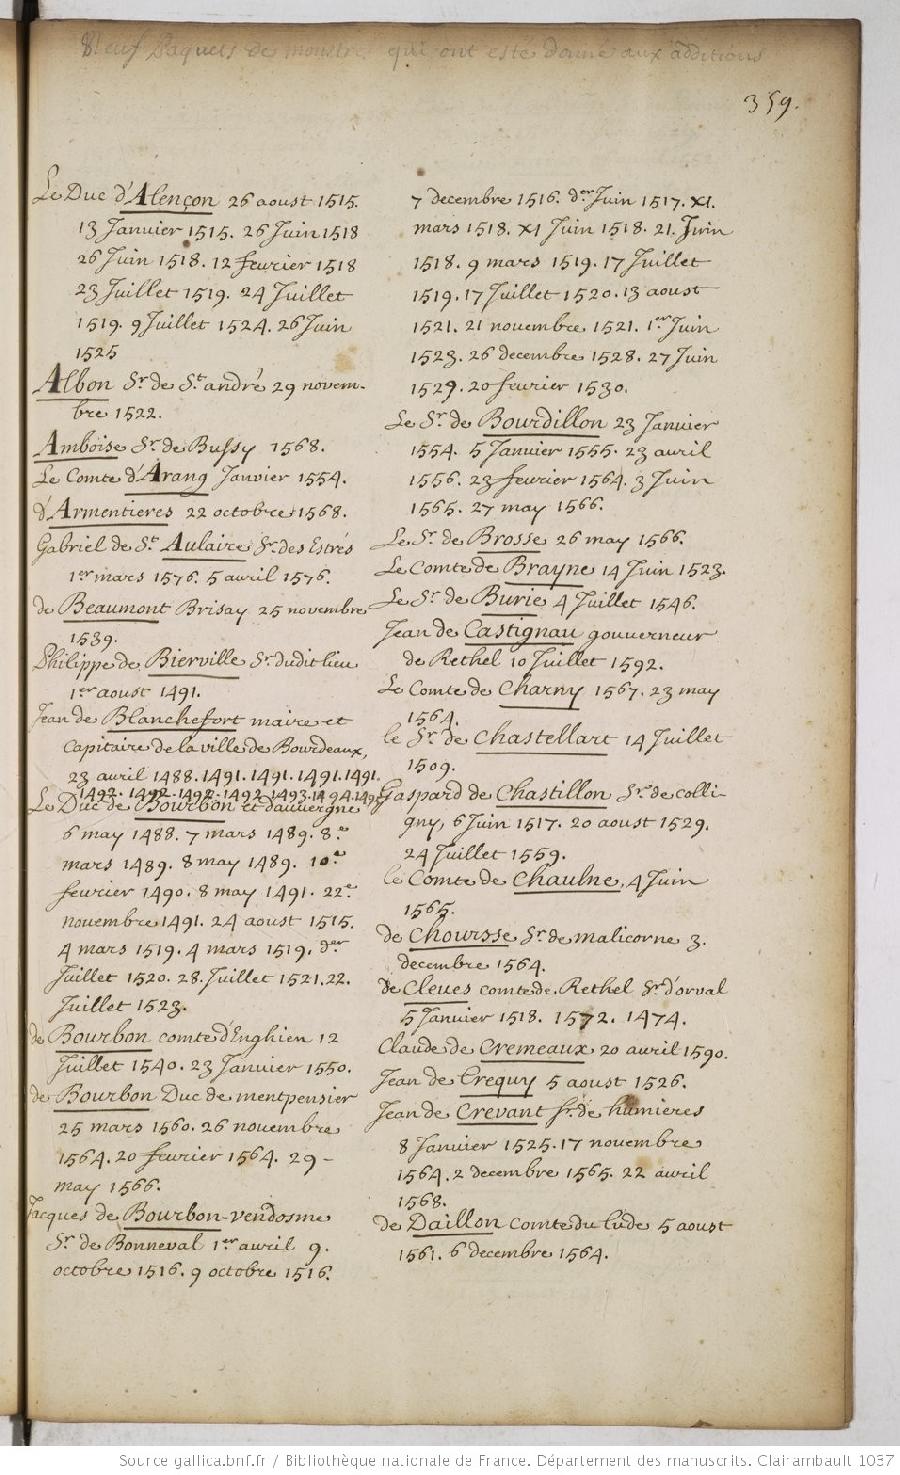 Neuf Paquets de monstres qui ont este donne aux additions
359.
Le Duc d'Alençon 26 aoust 1515.
13 Janvier 1515. 26 Juin 1518
26 Juin 1518. 12 feurier 1518
23 Juillet 1519. 24 Juillet
1519. 9 Juillet 1524. 26 Juin
1525
Albon Sr. de St. andré 29 novem-
bre 1522.
Amboise Sr. de Bussy 1568.
Le Comte d'Arang Janvier 1554.
d'Armentieres 22 octobre 1568.
Gabriel de St. Aulaire Sr. des Estrés
1er mars 1576. 5 avril 1576.
de Beaumont Brisay 25 novembre
1539.
Philippe de Bierville Sr. dudit lieu
1er aoust 1491.
Jean de Blanchefort maire et
Capitaire de la ville de Bourdeaux,
23 avril 1488. 1491. 1491. 1491. 1491.
1492. 1492. 1492. 1492. 1493. 1494. 1495
Le Duc de Bourbon et d'auvergne
6 may 1488. 7 mars 1489. 8.e
mars 1489. 8 may 1489. 10.e
feurier 1490. 8 may 1491. 22.e
novembre 1491. 24 aoust 1515.
4 mars 1519. 4 mars 1519. der
Juillet 1520. 28. Juillet 1521. 22.
Juillet 1523.
de Bourbon comte d'Enghien 12
Juillet 1540. 23 Janvier 1550.
de Bourbon Duc de mentpensier
25 mars 1560. 26 novembre
1564. 20 feurier 1564. 29-
may 1566.
Jacques de Bourbon-vendosme
Sr. de Bonneval 1er avril 9.
octobre 1516. 9 octobre 1516.
7 decembre 1516. der Juin 1517. XI.
mars 1518. XI Juin 1518. 21. Juin
1518. 9 mars 1519. 17 Juillet
1519. 17 Juillet 1520. 13 aoust
1521. 21 novembre 1521. 1er Juin
1523. 26 decembre 1528. 27 Juin
1529. 20 feurier 1530.
Le Sr. de Bourdillon 23 Janvier
1554. 5 Janvier 1555. 23 avril
1556. 23 feurier 1564. 3 Juin
1565. 27 may 1566.
Le Sr. de Brosse 26 may 1566.
Le Comte de Brayne 14 Juin 1523.
Le Sr. de Burie 4 Juillet 1546.
Jean de Castignau gouverneur
de Rethel 10 Juillet 1592.
Le Comte de Charny 1567. 23 may
1564.
le Sr. de Chastellart 14 Juillet
1509.
Gaspard de Chastillon Sr. de colli-
gny, 6 Juin 1517. 20 aoust 1529.
24 Juillet 1559.
le Comte de Chaulne, 4 Juin
1565.
de Choursse Sr. de malicorne 3.
decembre 1564.
de Cleves comte de. Rethel Sr. d'orval
5 Janvier 1518. 1572. 1474.
Claude de Cremeaux 20 avril 1590.
Jean de Crequy 5 aoust 1526.
Jean de Crevant Sr. de humieres
8 Janvier 1525. 17 novembre
1564. 2 decembre 1565. 22 avril
1568.
de Daillon comte du Lude 5 aoust
1561. 6 decembre 1564.
Source gallica.bnf.fr / Bibliothèque nationale de France. Département des manuscrits. Clairambault 1037